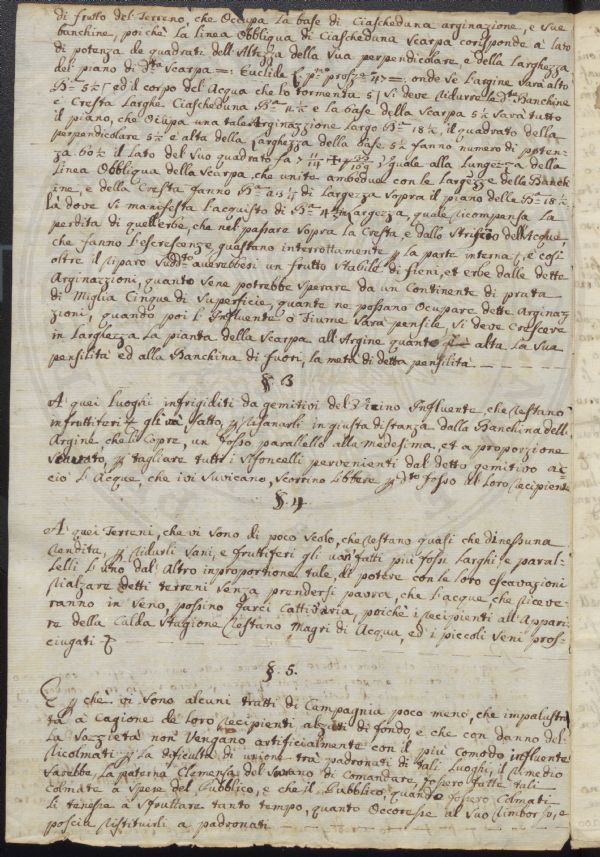 di frutto del Terreno, che Occupa la base di Ciascheduna arginazione, e sue
banchine, poiche La Linea Obbliqua di Ciascheduna scarpa corisponde à lato
di potenza de quadrati dell'Altezza della sua perpendicolare, e della Larghezza
del piano di d.ta Scarpa =: Euclide 47 =: onde se L'argine sarà alto
5½ ed il corpo del Acqua che lo tormenta 5, si deve ridurre le d.te Banchine
e Cresta Larghe Ciascheduna e la base della Scarpa 5½ sarà tutto
il piano, che Ocupa una tale Arginazzione Largo 18½, il quadrato della
perpendicolare 5½ e alta della Larghezza della base 5½ fanno numero di poten-
za 60½ il Lato del suo quadrato fa 7 quale alla Lungezza della
Linea Obbliqua della Scarpa, che unite ambedue con le Largezze delle Banch
ine, e della Cresta fanno di Largezza sopra il piano delle 18½
là dove si manifesta L'acquisto di in Largezza, quale ricompensa La
perdita di quell'erbe, che nel passare sopra la Cresta, e dallo Strisio dell'Acque,
che fanno L'escrescenze, guastano interrottamente la parte interna, e cosi
oltre il riparo sud.to averebbesi un frutto stabile di fieni, et erbe dalle dette
Arginazzioni, quanto sene potrebbe sperare da un Continente di prata
di Miglia Cinque di superficie, quante ne possano Ocupare dette Arginaz-
zioni, quando poi L'Influente o Fiume sarà pensile, si deve Crescere
in Larghezza La pianta della Scarpa all'Argine quanto alta La sua
pensilità ed alla Banchina di fuori, la metà di detta pensilità
§. 3
A quei Luoghi infrigiditi da gemitivi del Vicino Influente, che restano
infruttiferi gli và fatto, risanarli in giusta distanza dalla Banchina dell'
Argine, che li copre, un fosso parallello alla medesima, et a proporzione
scavato, tagliare tutti i sifoncelli pervenienti dal detto gemitivo ac-
ciò L'Acque, che ivi suvicano, scorrino Libbere d.to fosso al Loro recipiente
§. 4
A quei Terreni, che vi sono di poco scolo, che restano quasi che di nessuna
rendita, ridurli sani, e fruttiferi gli van fatti più fossi Larghi, e paral-
lelli L'uno dal' Altro in proportione tale, di potere con le Loro escavazioni
rialzare detti terreni senza prendersi paora, che L'acque, che riceve-
ranno in seno, possino farci Cattiv'aria, poiche i recipienti all'Appari-
re della Calda Stagione restano Magri di Acqua, ed i piccoli seni pros-
ciugati
§. 5.
E che vi sono alcuni tratti di Campagnia poco meno, che impalustri
ta à Cagione de' Loro recipienti alzati di fondo, e che con danno del-
la sazzietà non vengano artificialmente con il più comodo influente
ricolmati la dificultà di unione trà padronati di tali Luoghi, il rimedio
sarebbe, La paterna Clemensa del sovrano di Comandare, fossero fatte tali
colmate à spese del Pubblico, e che il Pubblico, quando fossero Colmati
li tenesse à sfruttare tanto tempo, quanto Occoresse al suo rimborso, e
poscia ristituirli a padronati